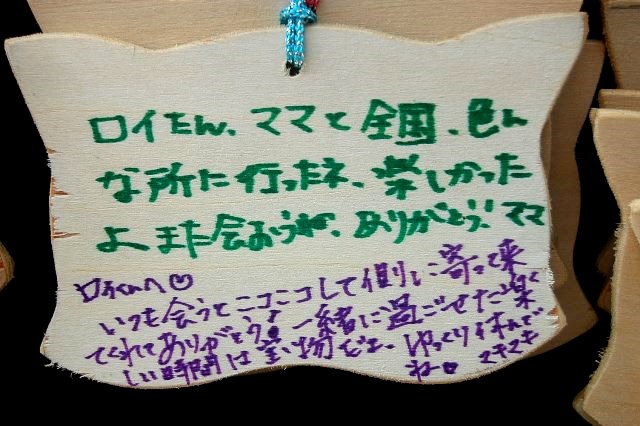 ロイたん、ママと全国、色ん
な所に行ったネ、楽しかった
よ、また会おうね。ありがとう! ママ
ロイたんへ♡
いつも会うとニコニコして側に寄って来
てくれてありがとう! 一緒に過ごせた楽
しい時間は宝物だよ。ゆっくり休んで
ね マキマキ